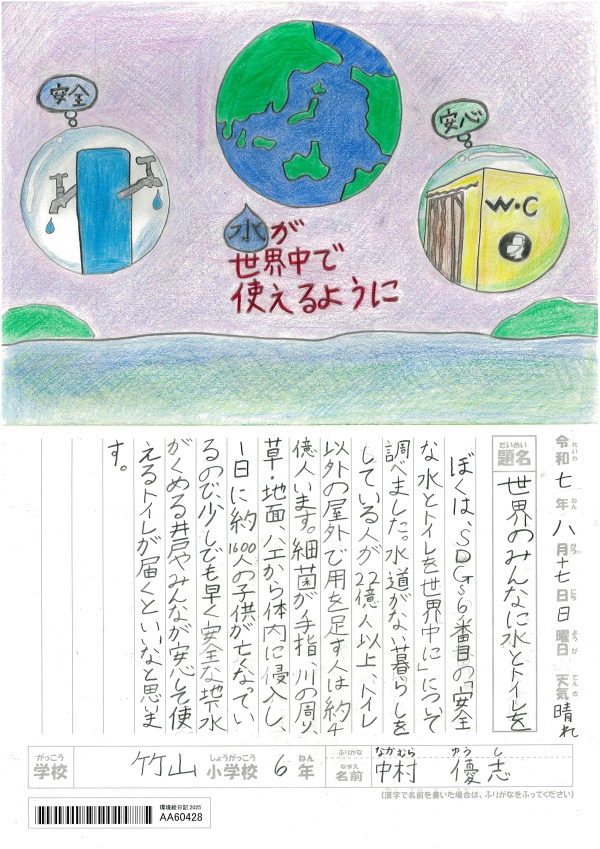 安全
安心
W・C
水が
世界中で
使えるように
令和七年八月十七日日曜日 天気晴れ
れいわ ねん がつ にち ようび てんき
だいめい
題名
世界のみんなに水とトイレを
ぼくは、SDGs6番目の「安全
な水とトイレを世界中に」について
調べました。水道がない暮らしを
している人が22億人以上、トイレ
以外の屋外で用を足す人は約4
億人います。細菌が手指、川の周り、
草・地面、ハエから体内に侵入し、
1日に約1600人の子供が亡くなってい
るので、少しでも早く安全な地下水
がくめる井戸やみんなが安心して使
えるトイレが届くといいなと思いま
す。
がっこう
学校
竹山
しょうがっこう
小学校
6
ねん
年
ふりがな
なかむら ゆうし
なまえ
名前
中村 優志
(漢字で名前を書いた場合は、ふりがなをふってください)
環境絵日記 2025
AA60428